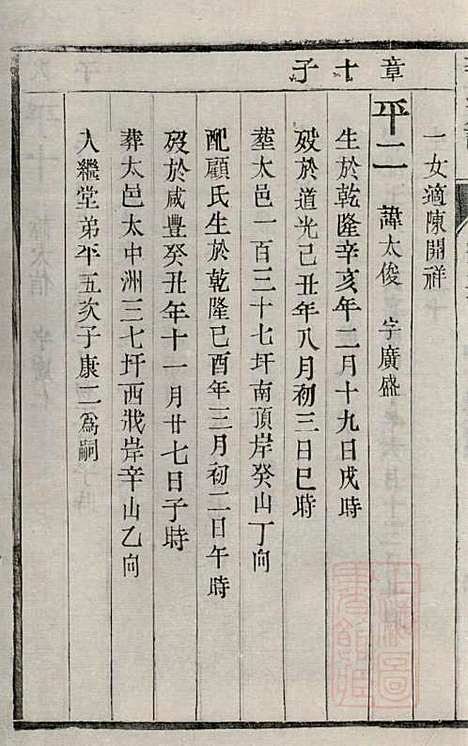 一女適陳開祥
章十子
平二 諱太俊 字廣盛
生於乾隆辛亥年二月十九日戌時
歿於道光己丑年八月初三日巳時
塟太邑一百三十七圩南頂岸癸山丁向
配顧氏生於乾隆己酉年三月初二日午時
歿於咸豐癸丑年十一月廿七日子時
葬太邑太中洲三七圩西戕岸辛山乙向
入繼堂弟平五次子康二為嗣